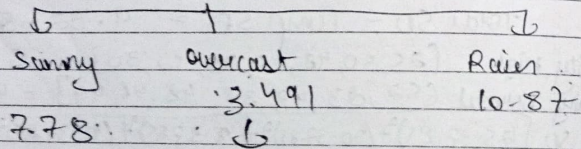 Sunny overcast Rain
3.491 10.87
7.78